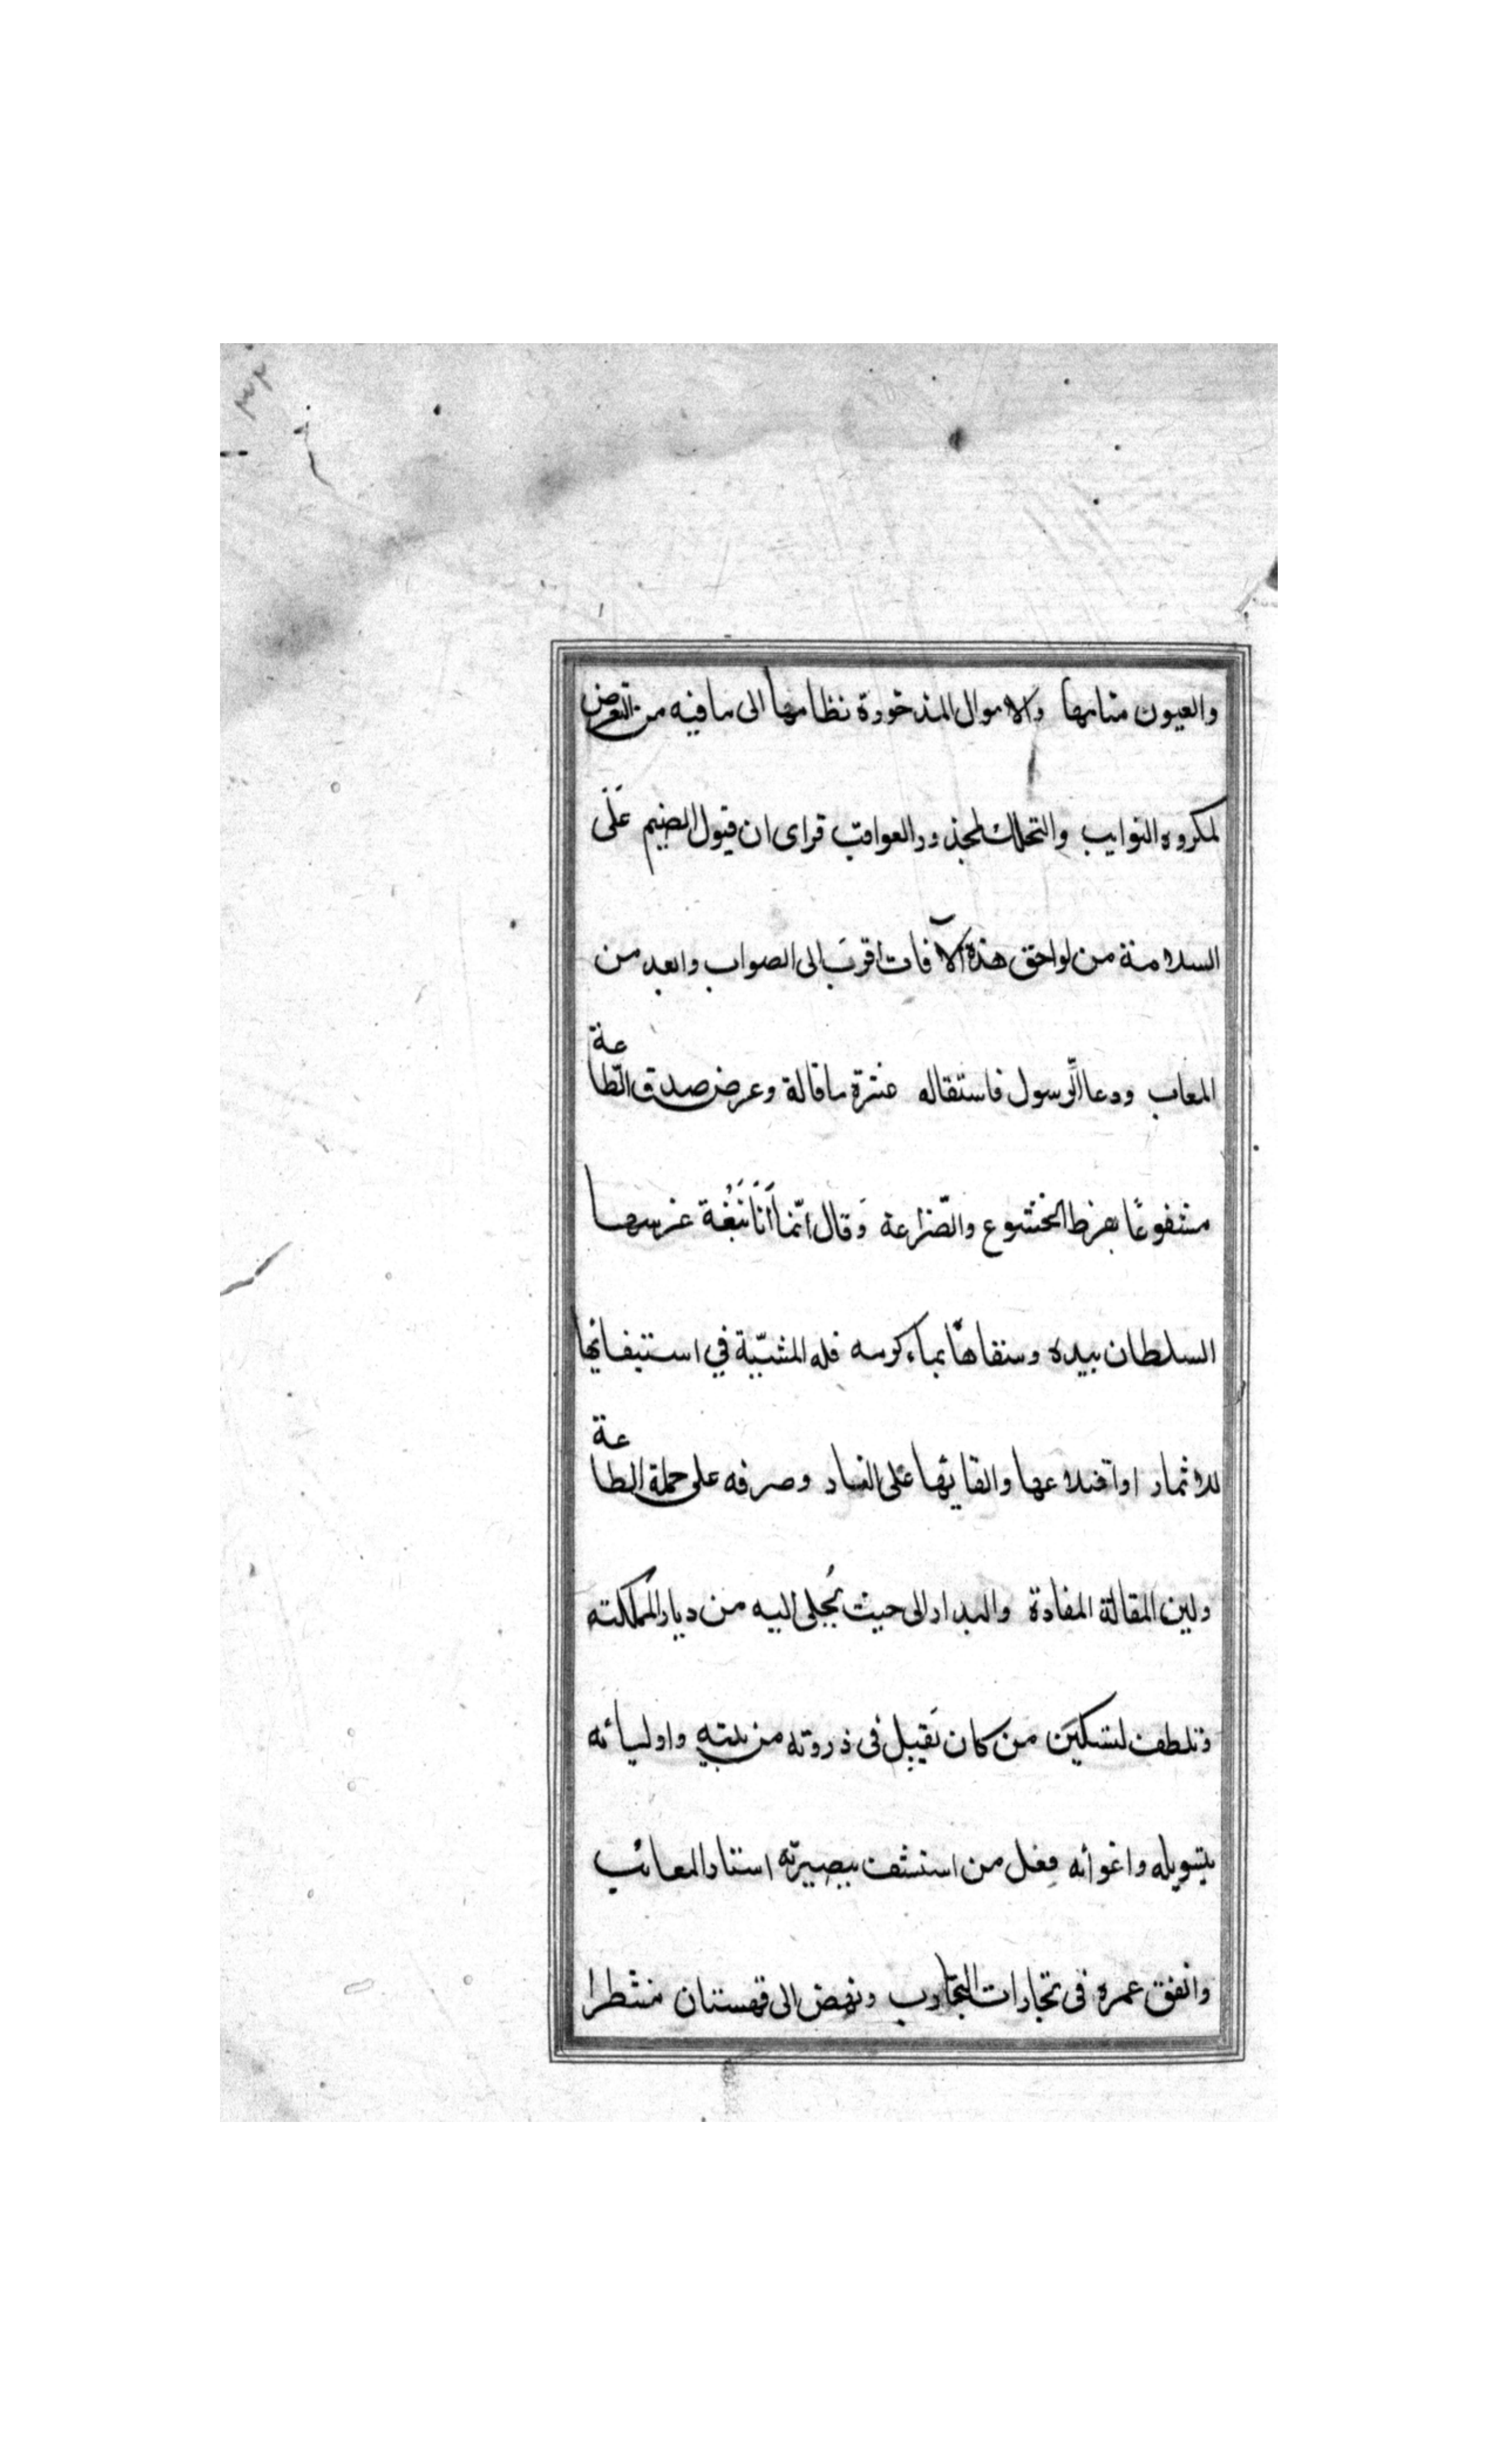 ٣٢
والعيون منامها والاموال المذخورة نظامها الى ما فيه من التعرض
لمكروه النوايب والتحكك لمحذور العواقب فراى ان قبول الضيم على
السلامة من لواحق هذه الآفات اقرب الى الصواب وابعد من
المعاب ودعا الرّسول فاستقاله عثرة ما قاله وعرض صدق الطّاعة
مشفوعًا بفرط الخشوع والضّراعة وَقال انّما اَنَا نَبْعَة غرسها
السلطان بيده وسقاها بماء كرمه فله المشيّة في استبقائها
للاثمار او اقتلاعها والقايها على النار وصرفه على جملة الطاعة
ولين المقالة المفادة والبدار الى حيث يُجلى اليه من ديار المملكته
وتلطف لتسكين من كان يَقبل فى ذروته من بيته واوليائه
بتسويله واغوائه فعل من استشف ببصيرته استار المعائب
وانفق عمره فى تجارات التجارب ونهض الى قهستان منتظرا